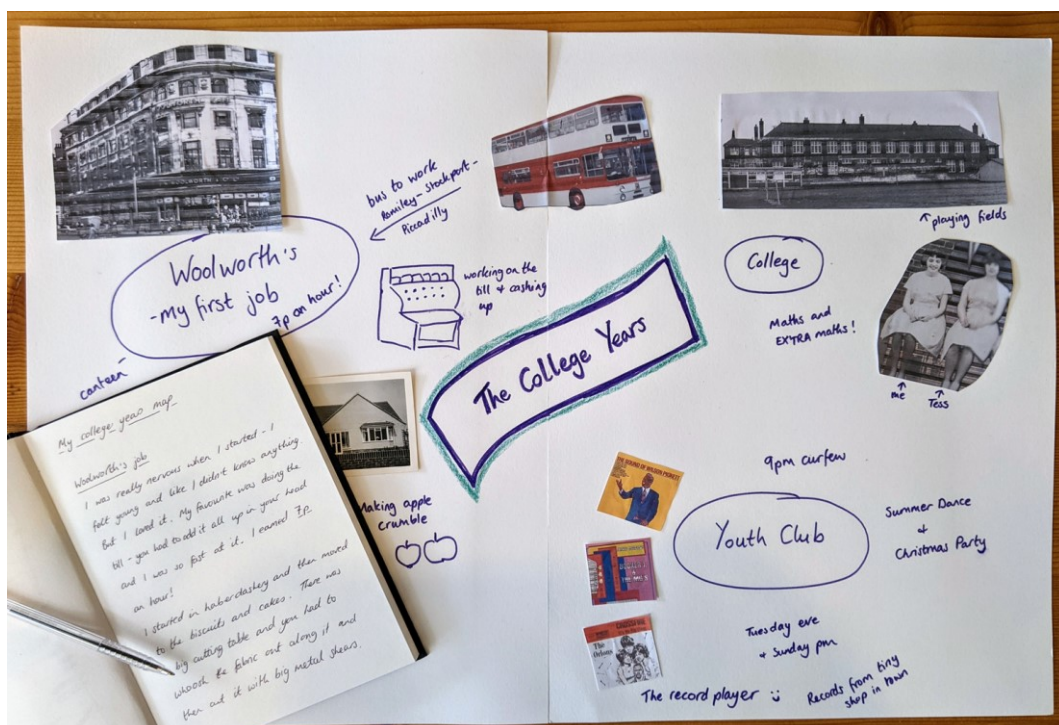 bus to work
Romiley - Stockport -
Piccadilly
Woolworth's
- my first job
7p an hour!
canteen
working on the
till & cashing
up
The College Years
↑ playing fields
College
Maths and
EXTRA maths!
me
Tess
Making apple
crumble
9pm curfew
Youth Club
Summer Dance
&
Christmas Party
Tuesday eve
& Sunday pm
The record player
Records from tiny
shop in town
THE SOUND OF WILSON PICKETT
The
Orlons
My college years map
Woolworth's job
I was really nervous when I started - I
felt young and like I didn't know anything
But I loved it. My favourite was doing the
till - you had to add it all up in your head
and I was so fast at it. I earned 7p
an hour!
I started in haberdashery and then moved
to the biscuits and cakes. There was
big cutting table and you had to
whoosh the fabric out along it and
then cut it with big metal shears.